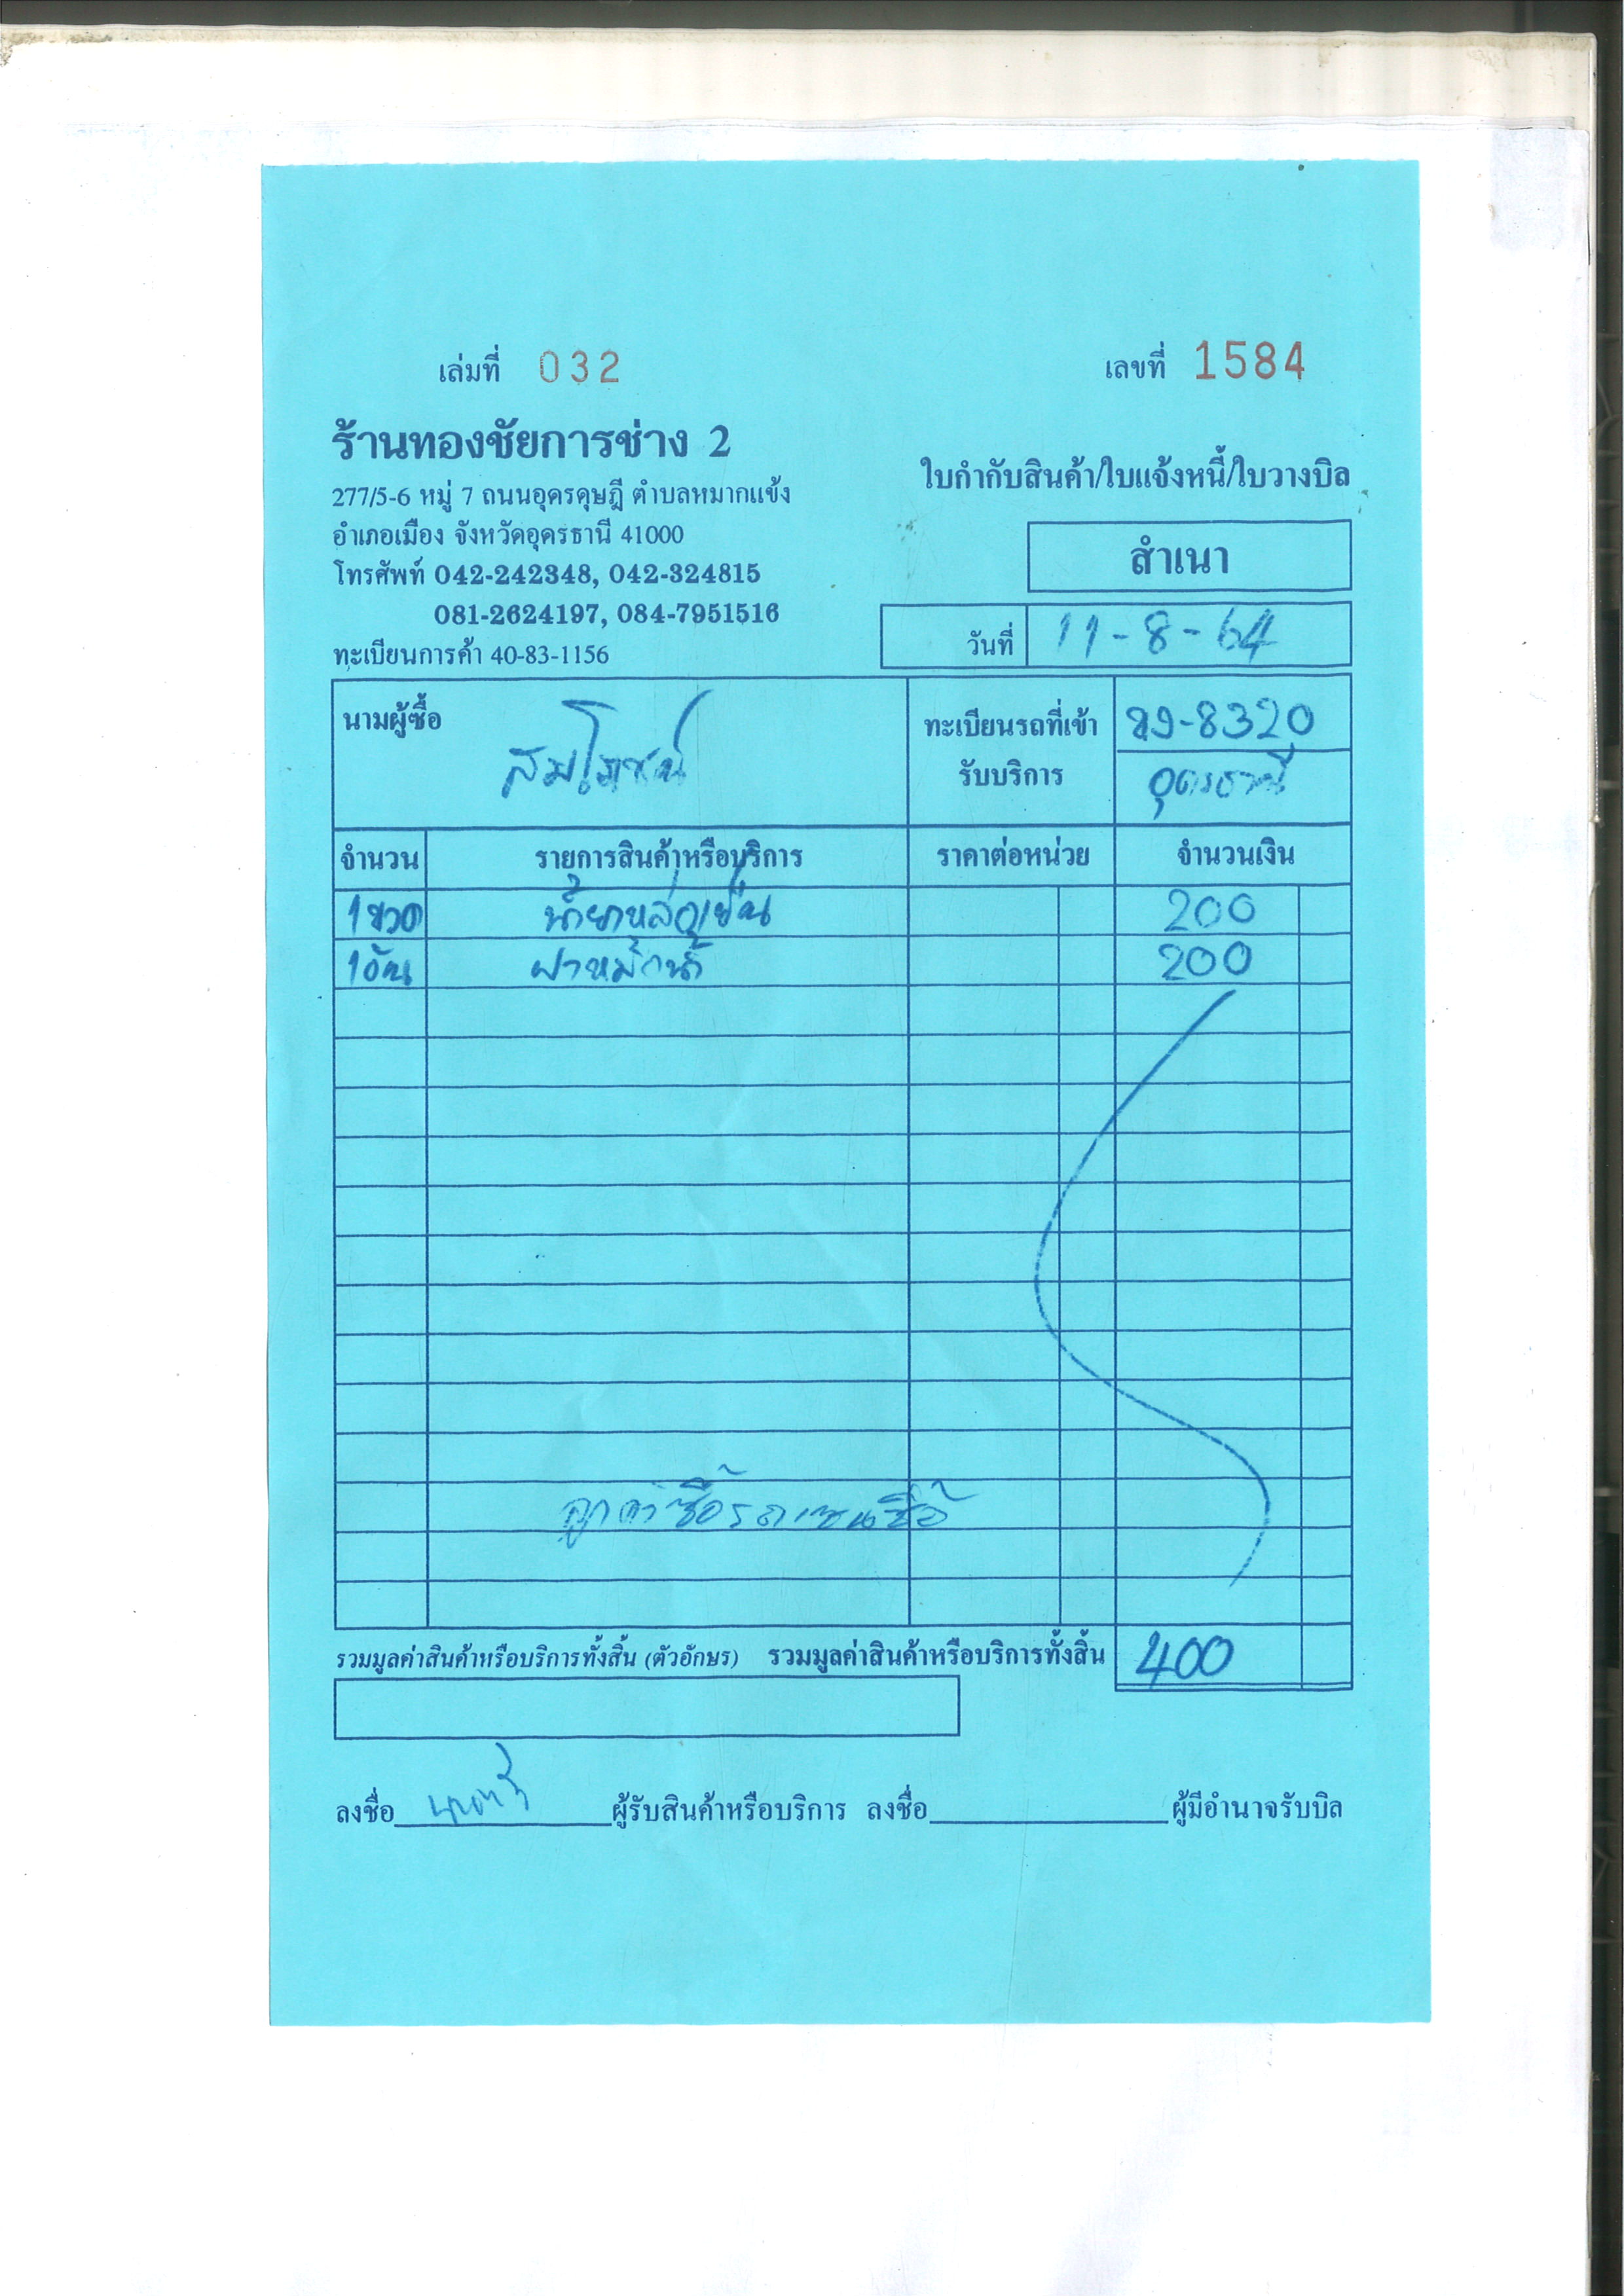 เล่มที่ 032
เลขที่ 1584
ร้านทองชัยการช่าง 2
277/5-6 หมู่ 7 ถนนอุดรดุษฎี ตำบลหมากแข้ง
อำเภอเมือง จังหวัดอุดรธานี 41000
โทรศัพท์ 042-242348, 042-324815
081-2624197, 084-7951516
ทะเบียนการค้า 40-83-1156
ใบกำกับสินค้า/ใบแจ้งหนี้/ใบวางบิล
สำเนา
วันที่ 11-8-64
นามผู้ซื้อ สมโภชน์
ทะเบียนรถที่เข้า -8320
รับบริการ อุดรธานี
จำนวน รายการสินค้าหรือบริการ ราคาต่อหน่วย จำนวนเงิน
1ขวด น้ำยาหล่อเย็น 200
1อัน ฝาหม้อน้ำ 200
ลูกค้าซื้อรถ
รวมมูลค่าสินค้าหรือบริการทั้งสิ้น (ตัวอักษร) รวมมูลค่าสินค้าหรือบริการทั้งสิ้น 400
ลงชื่อ ผู้รับสินค้าหรือบริการ ลงชื่อ ผู้มีอำนาจรับบิล